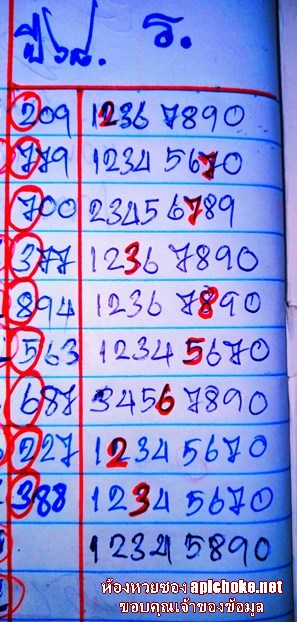 ปี ๖๘. ร.
209 1236 7890
779 1234 5670
700 2345 6789
377 1236 7890
894 1236 7890
563 1234 5670
687 3456 7890
227 1234 5670
388 1234 5670
12345890
ห้องหวยซอง apichoke.net
ขอบคุณเจ้าของข้อมูล